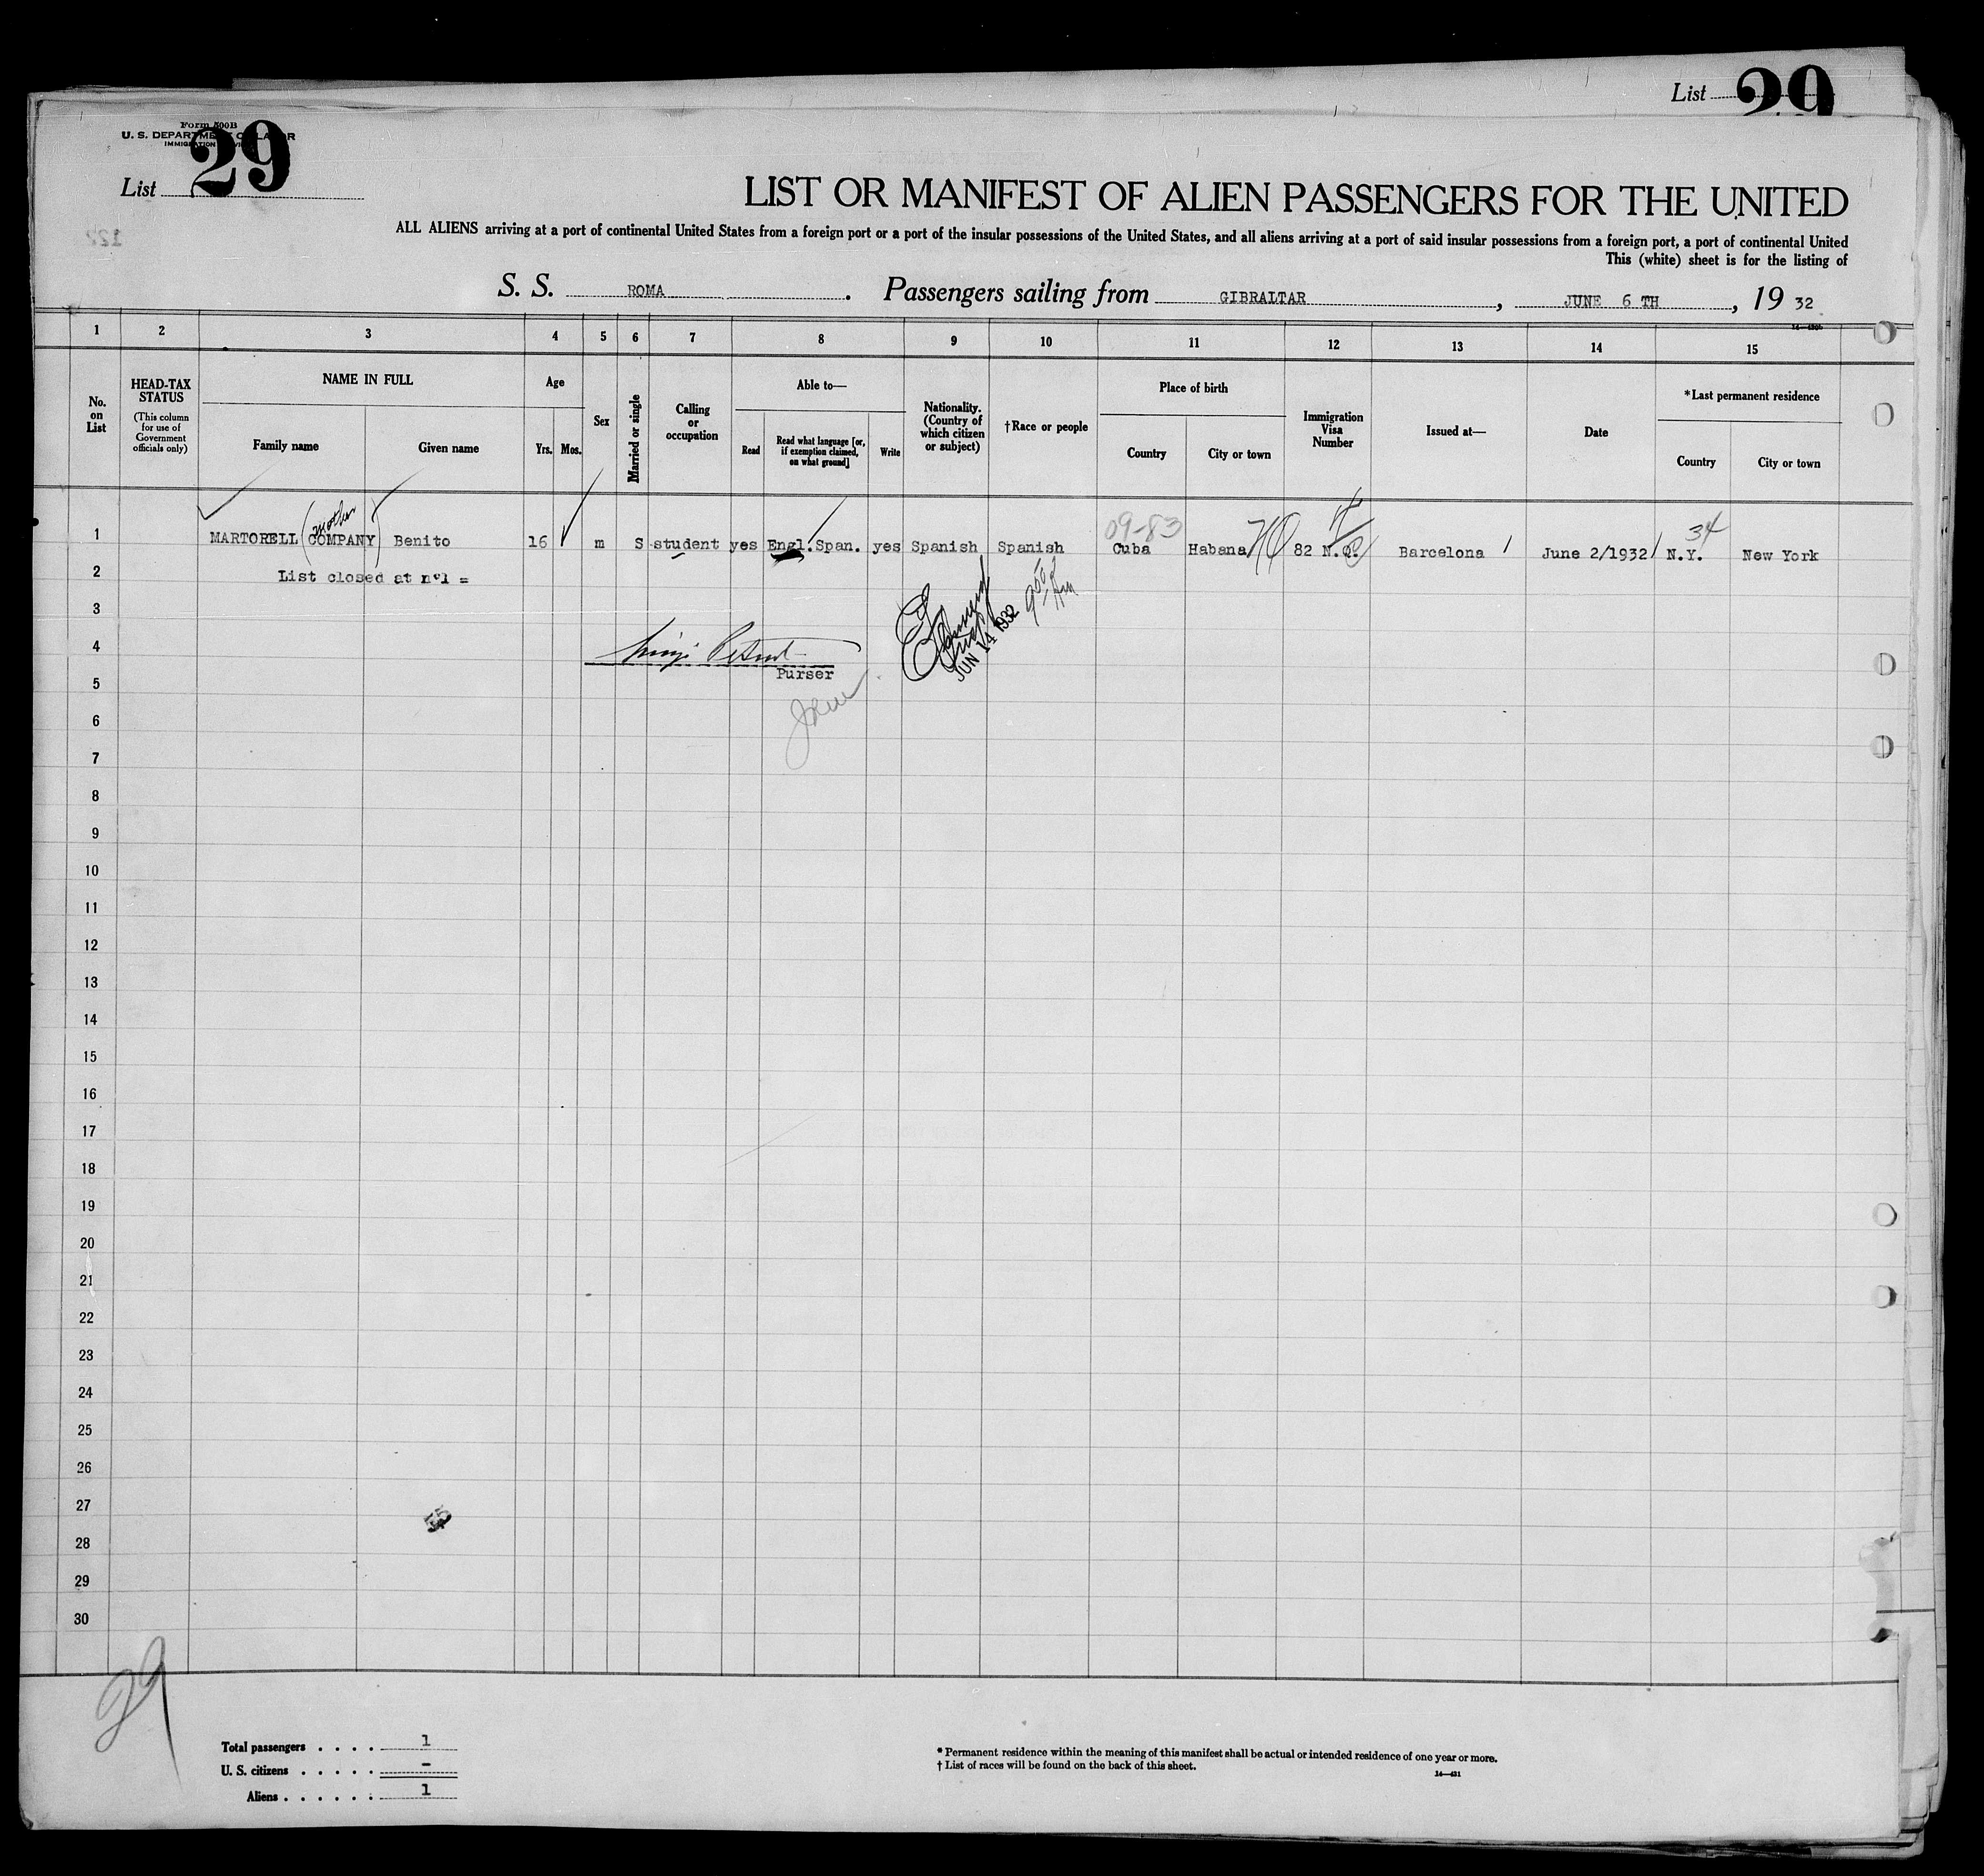 List 29
Form 500B
U. S. DEPARTMENT OF LABOR
IMMIGRATION SERVICE
List 29
LIST OR MANIFEST OF ALIEN PASSENGERS FOR THE UNITED
ALL ALIENS arriving at a port of continental United States from a foreign port or a port of the insular possessions of the United States, and all aliens arriving at a port of said insular possessions from a foreign port, a port of continental United
This (white) sheet is for the listing of
S. S. ROMA. Passengers sailing from GIBRALTAR, JUNE 6 TH, 19 32
1 2 3 4 5 6 7 8 9 10 11 12 13 14 15
No. on List
HEAD-TAX STATUS
(This column for use of Government officials only)
NAME IN FULL
Family name
Given name
Age
Yrs. Mos.
Sex
Married or single
Calling or occupation
Able to—
Read
Read what language [or, if exemption claimed, on what ground]
Write
Nationality. (Country of which citizen or subject)
†Race or people
Place of birth
Country
City or town
Immigration Visa Number
Issued at—
Date
*Last permanent residence
Country
City or town
mother
09-83
34
1 MARTORELL (COMPANY) Benito 16 m S student yes Engl. Span. yes Spanish Spanish Cuba Habana 82 N.Q. Barcelona June 2/1932 N.Y. New York
2 List closed at n°1 =
3
JUN 14 1932
4
Purser
5
6
7
8
9
10
11
12
13
14
15
16
17
18
19
20
21
22
23
24
25
26
27
28
29
30
29
Total passengers . . . . 1
U. S. citizens . . . . . -
Aliens . . . . . . 1
* Permanent residence within the meaning of this manifest shall be actual or intended residence of one year or more.
† List of races will be found on the back of this sheet.